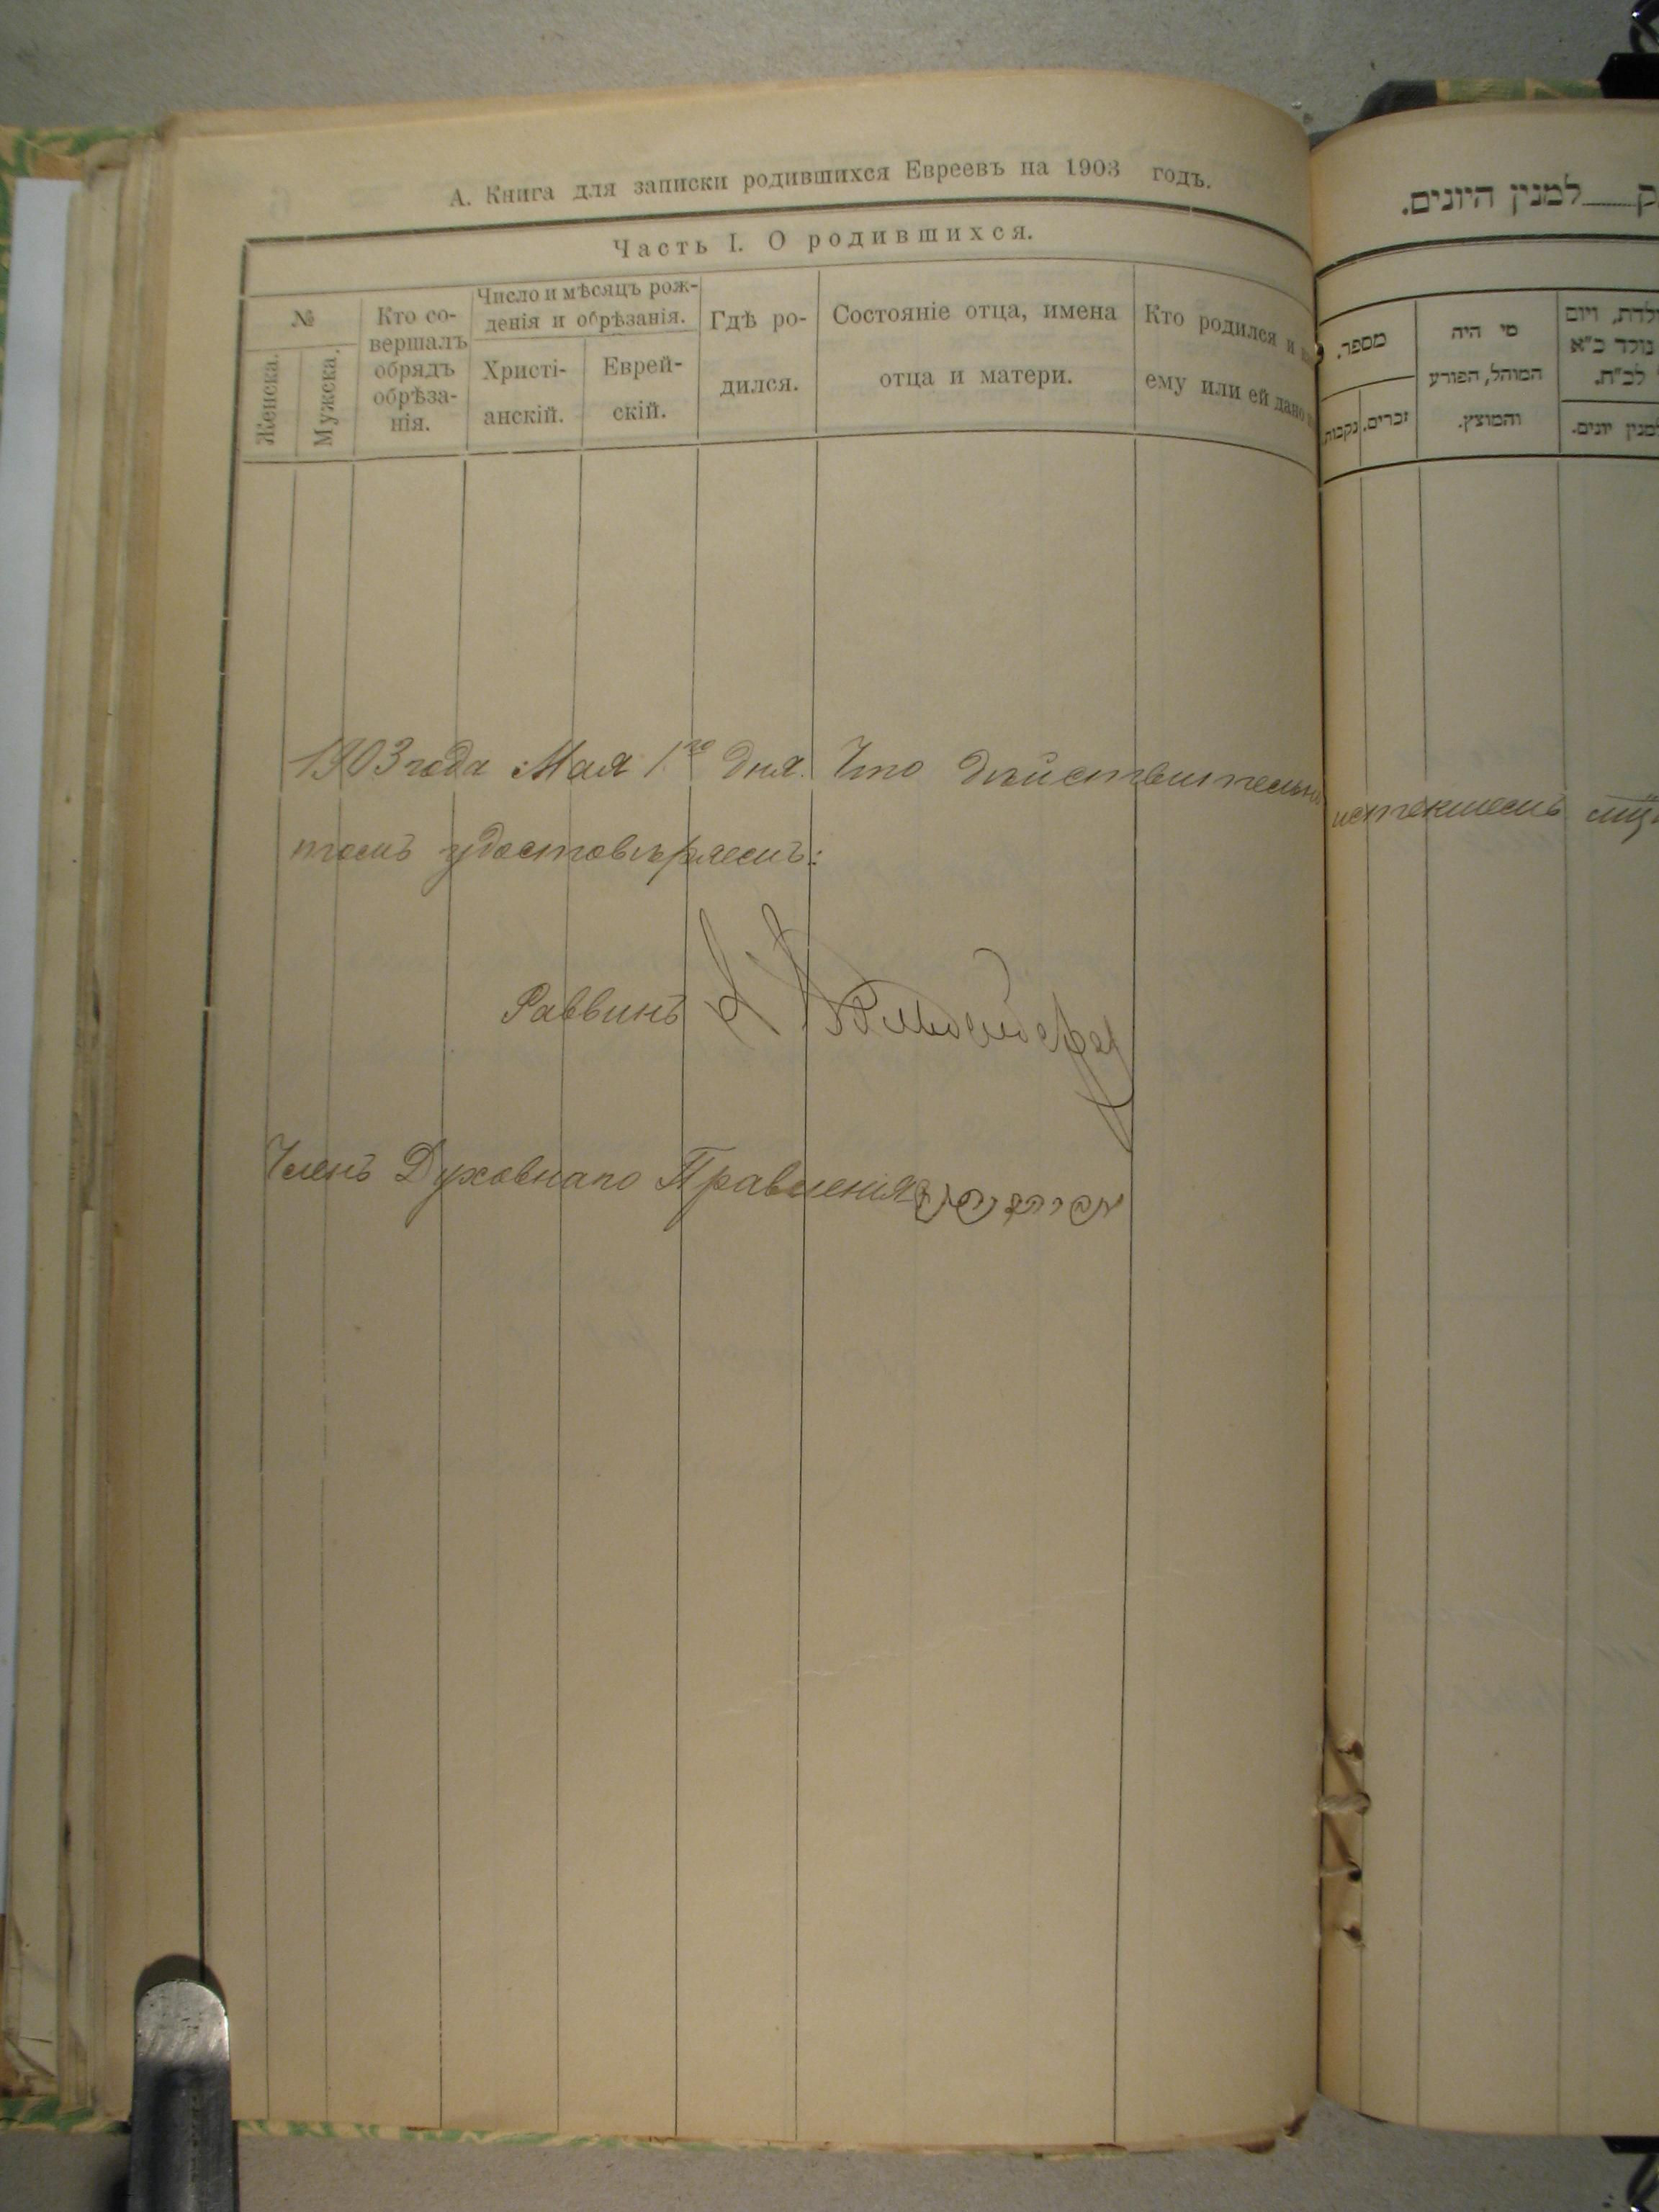 А. Книга для записки родившихся Евреевъ на 1903 годъ.
Часть I. О родившихся.
№
Женска.
Мужска.
Кто со-
вершалъ
обрядъ
обрѣза-
нія.
Число и мѣсяцъ рож-
денія и обрѣзанія.
Христі-
анскій.
Еврей-
скій.
Гдѣ ро-
дился.
Состояніе отца, имена
отца и матери.
Кто родился и
ему или ей дано
1903 года Мая 1го дня. Что действительно
томъ удостовѣряемъ:
Раввинъ
Членъ Духовнаго Правленія
למנין היונים.
מספר.
נקבות.
זכרים.
מי היה
המוהל, הפורע
והמוצץ.
ילדת, ויום
נולד כ"א
לכ"ת.
למנין יונים.
истекшемъ